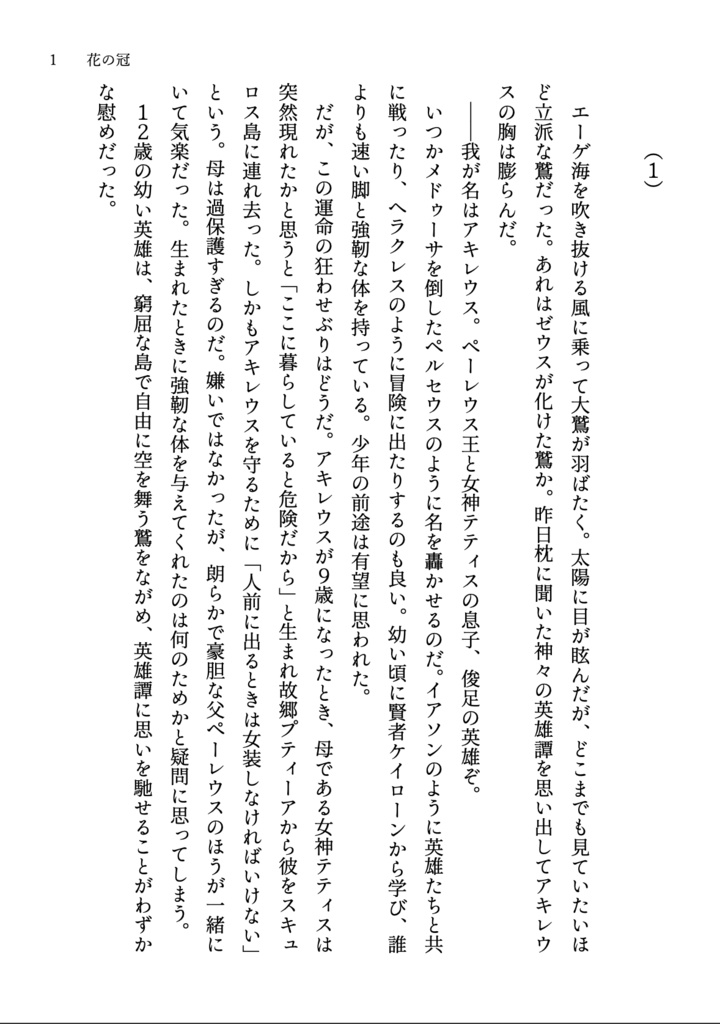 1 花の冠
(1)
エーゲ海を吹き抜ける風に乗って大鷲が羽ばたく。太陽に目が眩んだが、どこまでも見ていたいほ
ど立派な鷲だった。あれはゼウスが化けた鷲か。昨日枕に聞いた神々の英雄譚を思い出してアキレウ
スの胸は膨らんだ。
――我が名はアキレウス。ペーレウス王と女神テティスの息子、俊足の英雄ぞ。
いつかメドゥーサを倒したペルセウスのように名を轟かせるのだ。イアソンのように英雄たちと共
に戦ったり、ヘラクレスのように冒険に出たりするのも良い。幼い頃に賢者ケイローンから学び、誰
よりも速い脚と強靭な体を持っている。少年の前途は有望に思われた。
だが、この運命の狂わせぶりはどうだ。アキレウスが9歳になったとき、母である女神テティスは
突然現れたかと思うと「ここに暮らしていると危険だから」と生まれ故郷プティーアから彼をスキュ
ロス島に連れ去った。しかもアキレウスを守るために「人前に出るときは女装しなければいけない」
という。母は過保護すぎるのだ。嫌いではなかったが、朗らかで豪胆な父ペーレウスのほうが一緒に
いて気楽だった。生まれたときに強靭な体を与えてくれたのは何のためかと疑問に思ってしまう。
12歳の幼い英雄は、窮屈な島で自由に空を舞う鷲をながめ、英雄譚に思いを馳せることがわずか
な慰めだった。